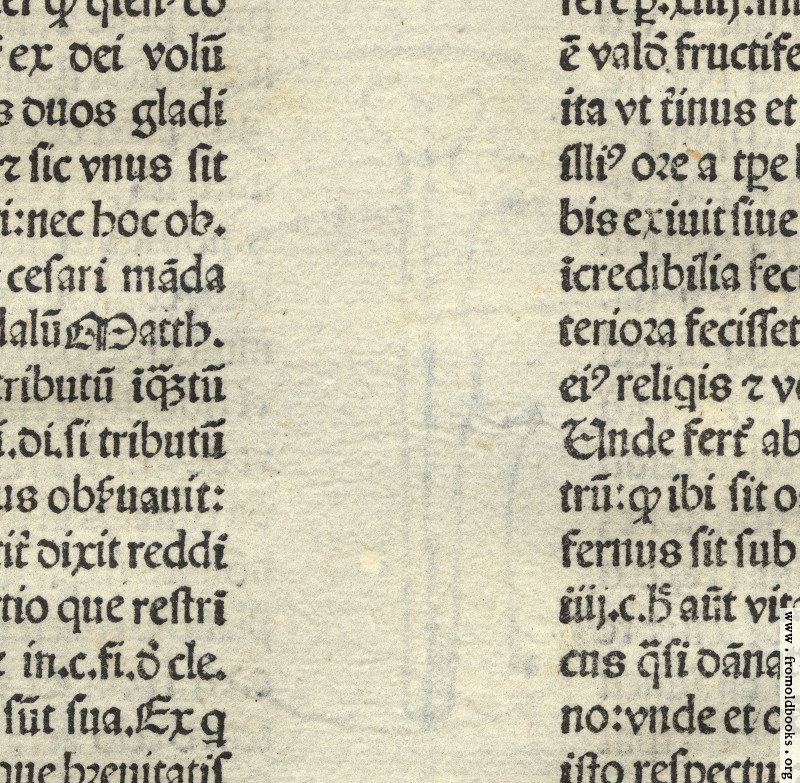 ex dei volū
s duos gladi
⁊ sic vnus sit
i:nec hoc ob.
cesari māda
dalū Matth.
tributū
i.di.si tributū
us obẜuauit:
tit̄ dixit reddi
tio que restri
in.c.fi.
sūt sua. Ex q
que breuitatis
ē valō fructife
ita vt t̄inus et
illiꝰ ore a tꝑe
bis exiuit siue
īcredibilia feci
teriora fecisset
eiꝰ religis ⁊ ve
Unde fert᷑ ab
trū:ꝙ ibi sit o
fernus sit sub
iiij.c.h̄ aūt vit
cus q̄si dāna
no:vnde et c
isto respectu
www.fromoldbooks.org